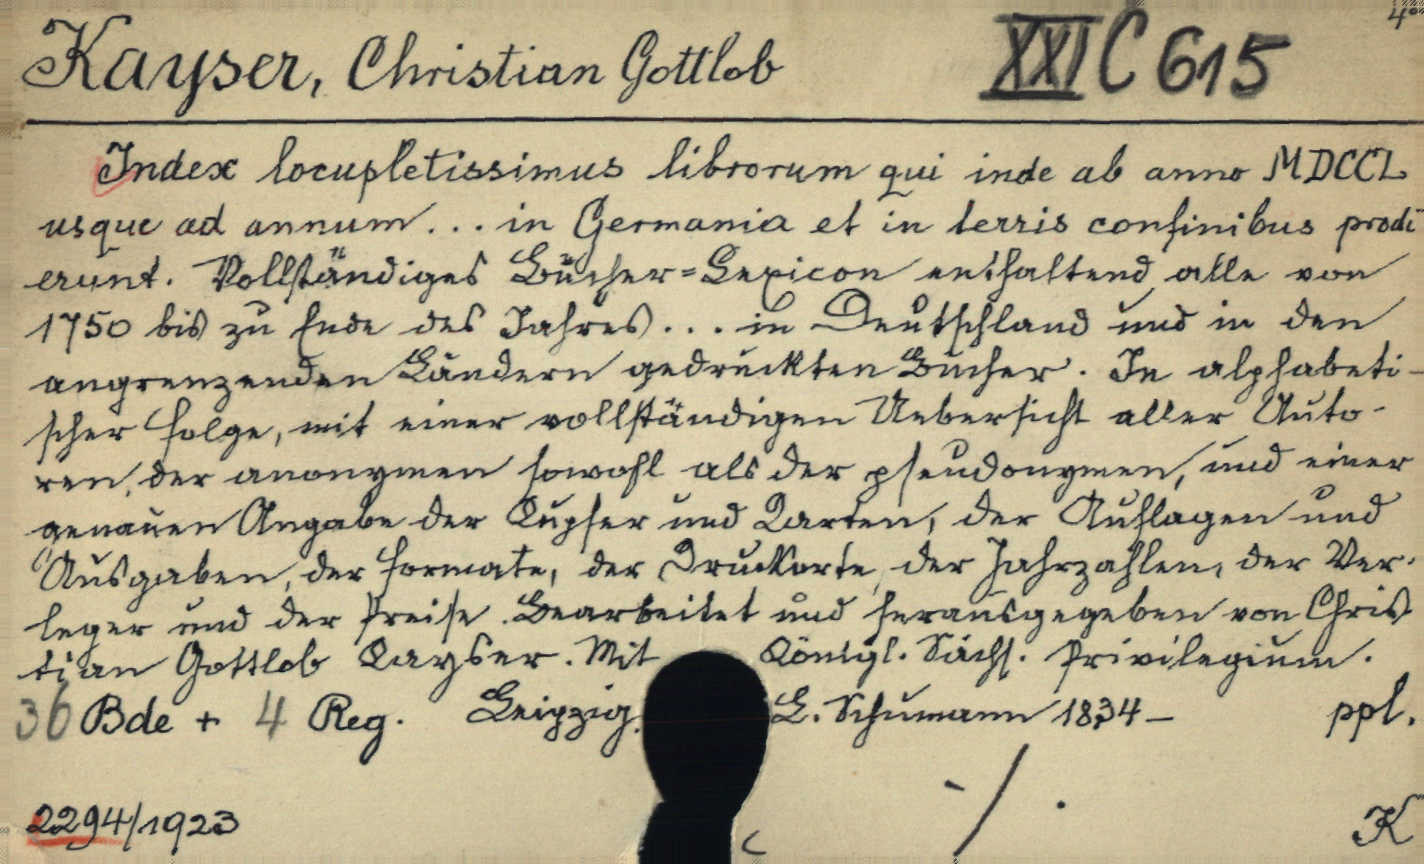 4°
Kayser, Christian Gottlob XXI C 615
Index locupletissimus librorum qui inde ab anno MDCCL
usque ad annum ... in Germania et in terris confinibus prodi
erunt. Vollständiges Bücher-Lexicon enthaltend alle von
1750 bis zu Ende des Jahres ... in Deutschland und in den
angrenzenden Ländern gedruckten Bücher. In alphabeti-
scher Folge, mit einer vollständigen Uebersicht aller Auto-
ren, der anonymen sowohl als der pseudonymen, und einer
genauen Angabe der Kupfer und Karten, der Auflagen und
Ausgaben, der Formate, der Druckorte, der Jahrzahlen, der Ver-
leger und der Preise. Bearbeitet und herausgegeben von Chris
tian Gottlob Kayser. Mit Königl. Sächs. Privilegium.
36 Bde + 4 Reg. Leipzig. L. Schumann 1834- ppl.
-/.
2294/1923 K